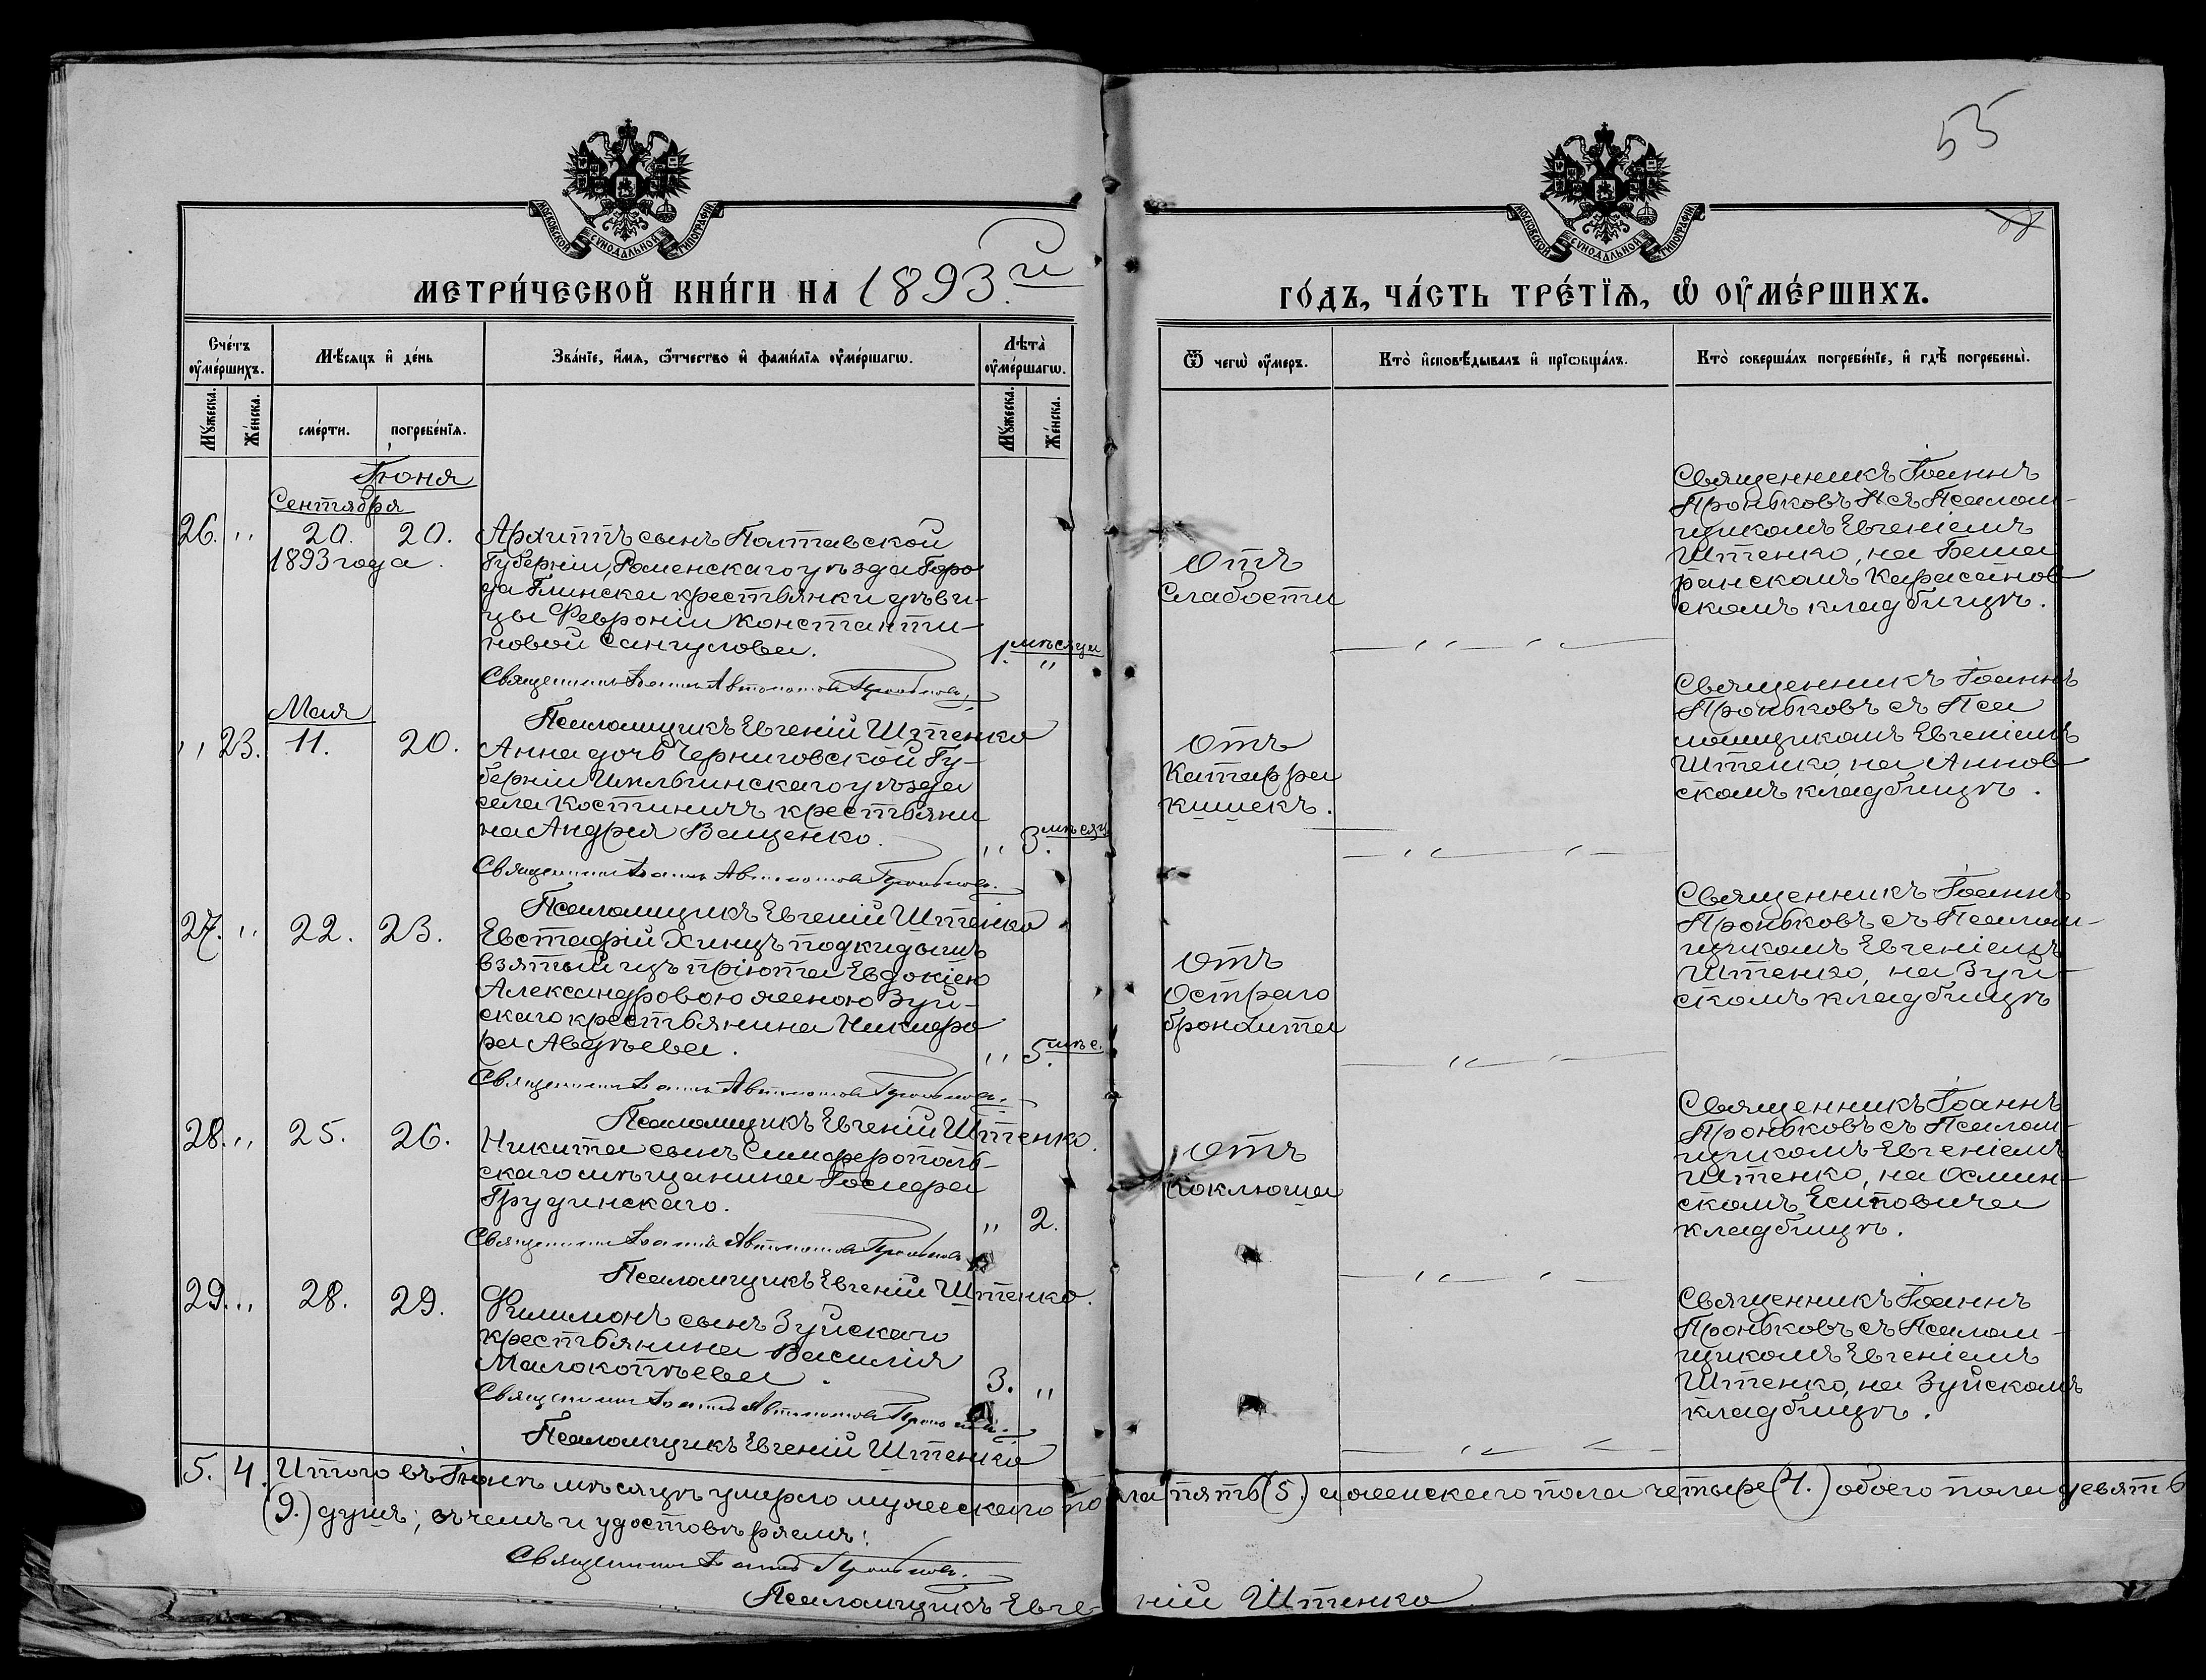 55
МОСКОВСКОЙ СѴНОДАЛЬНОЙ ТИПОГРАФІИ
МОСКОВСКОЙ СѴНОДАЛЬНОЙ ТИПОГРАФІИ
МЕТРИ́ЧЕСКОЙ КНИ́ГИ НА 1893.й
ГО́ДЪ, ЧА́СТЬ ТРЕ́ТЇѦ, Ѡ҆ ОУ҆МЕ́РШИХЪ.
Сче́тъ оу҆ме́ршихъ.
Мѣ́сяцъ и҆ де́нь
Зва́нїе, и҆́мѧ, ѻ҆́тчество и҆ фами́лїѧ оу҆ме́ршагѡ.
Лѣ́та оу҆ме́ршагѡ.
Ѿ чегѡ̀ оу҆́меръ.
Кто̀ и҆сповѣ́дывалъ и҆ прїѡбща́лъ.
Кто̀ соверша́лъ погребе́нїе, и҆ гдѣ̀ погребены̀.
Му́жеска.
Же́нска.
сме́рти.
погребе́нїѧ.
Му́жеска.
Же́нска.
Іюня
Сентября
26. " 20. 20.
1893 года.
Архиппъ сынъ Полтавской
Губерніи, Роменскаго уѣзда Горо
да Глинска крестьянки дѣви-
цы Февроніи Константи-
новой Сангулова.
1. мѣсяца "
Священникъ Іоаннъ Автономовъ Проньковъ
Псаломщикъ Евгеній Штенко
Отъ
Слабости
Священникъ Іоаннъ
Проньковъ съ Псалом-
щикомъ Евгеніемъ
Штенко, на Беша
ранскомъ Карасанов
скомъ кладбищѣ.
Мая
" 23. 11. 20.
Анна дочь Черниговской Гу-
берніи уѣзда
села Костиничъ крестьяни
на Андрея Ващенко.
" 3. мѣсяц
Священникъ Іоаннъ Автономовъ Проньковъ.
Псаломщикъ Евгеній Штенко
Отъ
Катарра
кишекъ.
Священникъ Іоаннъ
Проньковъ съ Пса
ломщикомъ Евгеніемъ
Штенко, на Аннов
скомъ кладбищѣ.
27. " 22. 23.
Евстафій Хинцъ подкидышъ
взятый изъ пріюта Евдокіею
Александровою женою Зуй-
скаго крестьянина Никифо
ра Авдѣева.
" 5. мѣс.
Священникъ Іоаннъ Автономовъ Проньковъ.
Псаломщикъ Евгеній Штенко.
Отъ
Остраго
бронхита
Священникъ Іоаннъ
Проньковъ съ Псалом-
щикомъ Евгеніемъ
Штенко, на Зуй-
скомъ кладбищѣ
28. " 25. 26.
Никита сынъ Симферополь-
скаго мѣщанина Іосифа
Грудинскаго.
" 2.
Священникъ Іоаннъ Автономовъ Проньковъ
Псаломщикъ Евгеній Штенко.
Отъ
коклюша
Священникъ Іоаннъ
Проньковъ съ Псалом-
щикомъ Евгеніемъ
Штенко, на Осмин-
скомъ Есиповича
кладбищѣ.
29. " 28. 29.
Филимонъ сынъ Зуйскаго
крестьянина Василія
Малокотѣева.
3. "
Священникъ Іоаннъ Автономовъ Проньковъ.
Псаломщикъ Евгеній Штенко
Священникъ Іоаннъ
Проньковъ съ Псалом-
щикомъ Евгеніемъ
Штенко, на Зуйскомъ
кладбищѣ.
5. 4. Итого въ Іюнѣ мѣсяцѣ умерло мужескаго пола пять (5.) а женскаго пола четыре (4.) обоего пола девять
(9.) душъ; въ чемъ и удостовѣряемъ:
Священникъ Іоаннъ Проньковъ.
Псаломщикъ Евгеній Штенко